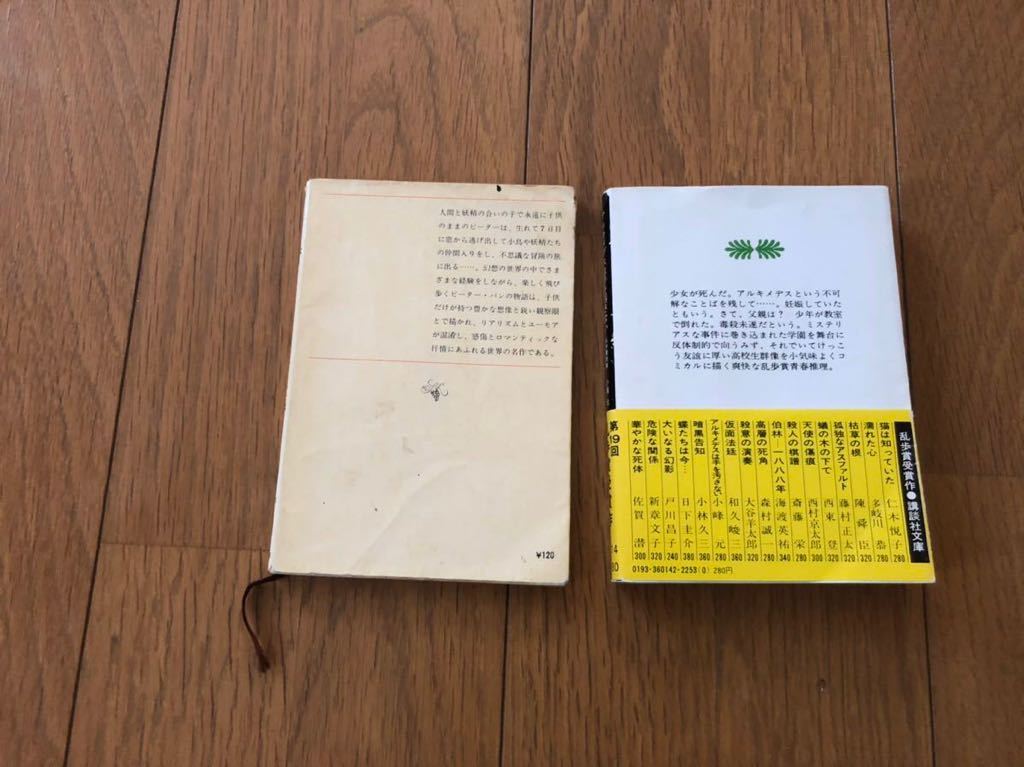 人間と妖精の合いの子で永遠に子供
のままのピーターは、生れて7日目
に窓から逃げ出して小鳥や妖精たち
の仲間入りをし、不思議な冒険の旅
に出る……。幻想の世界の中でさま
ざまな経験をしながら、楽しく飛び
歩くピーター・パンの物語は、子供
だけが持つ豊かな想像と鋭い観察眼
とで描かれ、リアリズムとユーモア
が混淆し、感傷とロマンティックな
抒情にあふれる世界の名作である。
¥120
少女が死んだ。アルキメデスという不可
解なことばを残して……。妊娠していた
ともいう。さて、父親は? 少年が教室
で倒れた。毒殺未遂だという。ミステリ
アスな事件に巻き込まれた学園を舞台に
反体制的で向うみず、それでいてけっこ
う友誼に厚い高校生群像を小気味よくコ
ミカルに描く爽快な乱歩賞青春推理。
乱歩賞受賞作●講談社文庫
猫は知っていた 仁木悦子 280
濡れた心 多岐川恭 280
枯草の根 陳舜臣 320
孤独なアスファルト 藤村正太 320
蟻の木の下で 西東登 320
天使の傷痕 西村京太郎 300
殺人の棋譜 斎藤栄 280
伯林―一八八八年 海渡英祐 340
高層の死角 森村誠一 280
殺意の演奏 大谷羊太郎 320
仮面法廷 和久峻三 360
アルキメデスは手を汚さない 小峰元 280
暗黒告知 小林久三 360
蝶たちは今… 日下圭介 380
大いなる幻影 戸川昌子 240
危険な関係 新章文子 320
華やかな死体 佐賀潜 300
第19回
0193-360142-2253(0) 280円